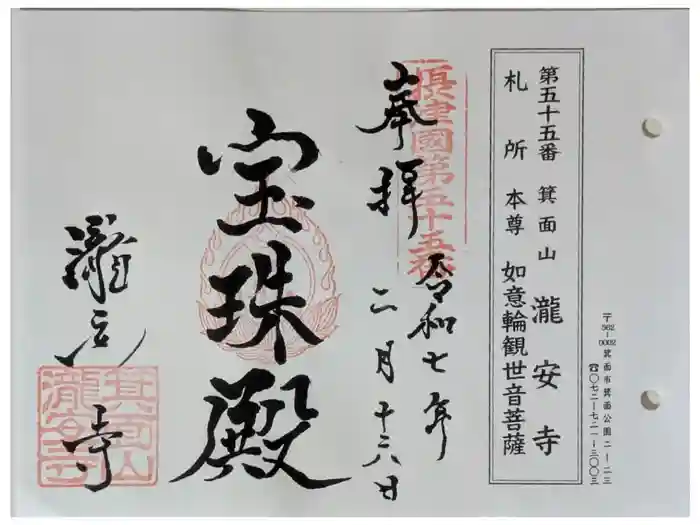 第五十五番 箕面山 瀧安寺
札所本尊 如意輪観世音菩薩
〒562-0002 箕面市箕面公園二ー二三
☎〇七二ー七二一ー三〇〇三
摂津國第五十五番
奉拝
令和七年
二月十六日
宝珠殿
瀧安寺
箕面山
瀧安寺